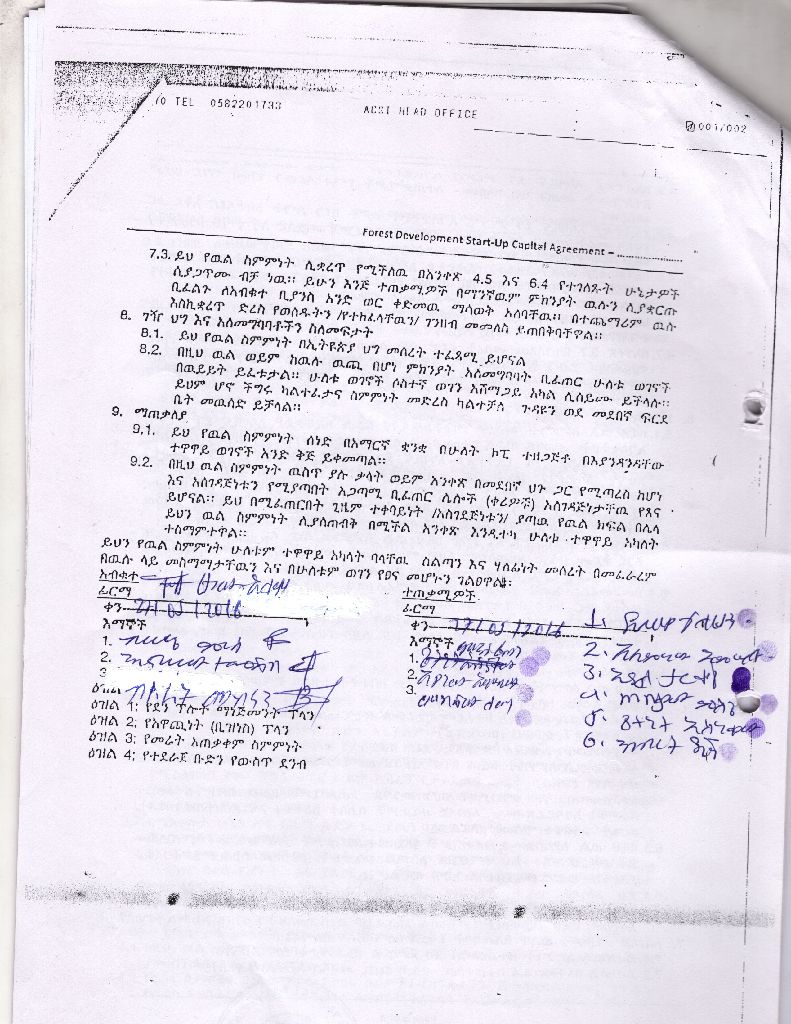 /O TEL 0582201733 ACSI HEAD OFFICE 001/002
Forest Development Start-Up Capital Agreement – ....................
7.3. ይህ የዉል ስምምነት ሊቋረጥ የሚችለዉ በአንቀጽ 4.5 እና 6.4 የተገለጹት ሁኔታዎች
ሲያጋጥሙ ብቻ ነዉ። ይሁን እንጅ ተጠቃሚዎች በማንኛዉም ምክንያት ዉሉን ሊያቋርጡ
ቢፈልጉ ለአብቁተ ቢያንስ አንድ ወር ቀድመዉ ማሳወቅ አለባቸዉ። በተጨማሪም ዉሉ
እስኪቋረጥ ድረስ የወሰዱትን /የተከፈላቸዉን/ ገንዘብ መመለስ ይጠበቅባቸዋል።
8. ገዥ ህግ እና አለመግባባቶችን ስለመፍታት
8.1. ይህ የዉል ስምምነት በኢትዮጵያ ህግ መሰረት ተፈጻሚ ይሆናል
8.2. በዚህ ዉል ወይም ከዉሉ ዉጪ በሆነ ምክንያት አለመግባባት ቢፈጠር ሁለቱ ወገኖች
በዉይይት ይፈቱታል። ሁለቱ ወገኖች ሶስተኛ ወገን አሸማጋይ አካል ሊሰይሙ ይችላሉ።
ይህም ሆኖ ችግሩ ካልተፈታና ስምምነት መድረስ ካልተቻለ ጉዳዩን ወደ መደበኛ ፍርደ
ቤት መዉሰድ ይቻላል።
9. ማጠቃለያ
9.1. ይህ የዉል ስምምነት ሰነድ በአማርኛ ቋንቋ በሁለት ኮፒ ተዘጋጅቶ በእያንዳንዳቸው
ተዋዋይ ወገኖች አንድ ቅጅ ይቀመጣል።
9.2. በዚህ ዉል ስምምነት ዉስጥ ያሉ ቃላት ወይም አንቀጽ በመደበኛ ህጉ ጋር የሚጣረስ ከሆነ
እና አስገዳጅነቱን የሚያጣበት አጋጣሚ ቢፈጠር ሌሎች (ቀሪዎች) አስገዳጅነታቸዉ የጸና
ይሆናል። ይህ በሚፈጠርበት ጊዜም ተቀባይነት /አስገደጅነቱን/ ያጣዉ የዉል ክፍል በሌላ
ይህን ዉል ስምምነት ሊያስጠብቅ በሚችል አንቀጽ እንዲተካ ሁለቱ ተዋዋይ አካላት
ተስማምተዋል።
ይህን የዉል ስምምነት ሁለቱም ተዋዋይ አካላት ባላቸዉ ስልጣን እና ሃላፊነት መሰረት በመፈራረም
በዉሉ ላይ መስማማታቸዉን እና በሁለቱም ወገን የፀና መሆኑን ገልፀዋል፡
አብቁተ
ፊርማ
ቀን
እማኞች
1.
2.
3
ተጠቃሚዎች
ፊርማ
ቀን
እማኞች
1.
2.
3.
1.
2.
3.
4.
5.
6.
ዕዝል 1; የደን ሃብት ማኔጅመንት ፕላን
ዕዝል 2; የአዋጪነት (ቢዝነስ) ፕላን
ዕዝል 3; የመሬት አጠቃቀም ስምምነት
ዕዝል 4; የተደራጀ ቡድን የውስጥ ደንብ